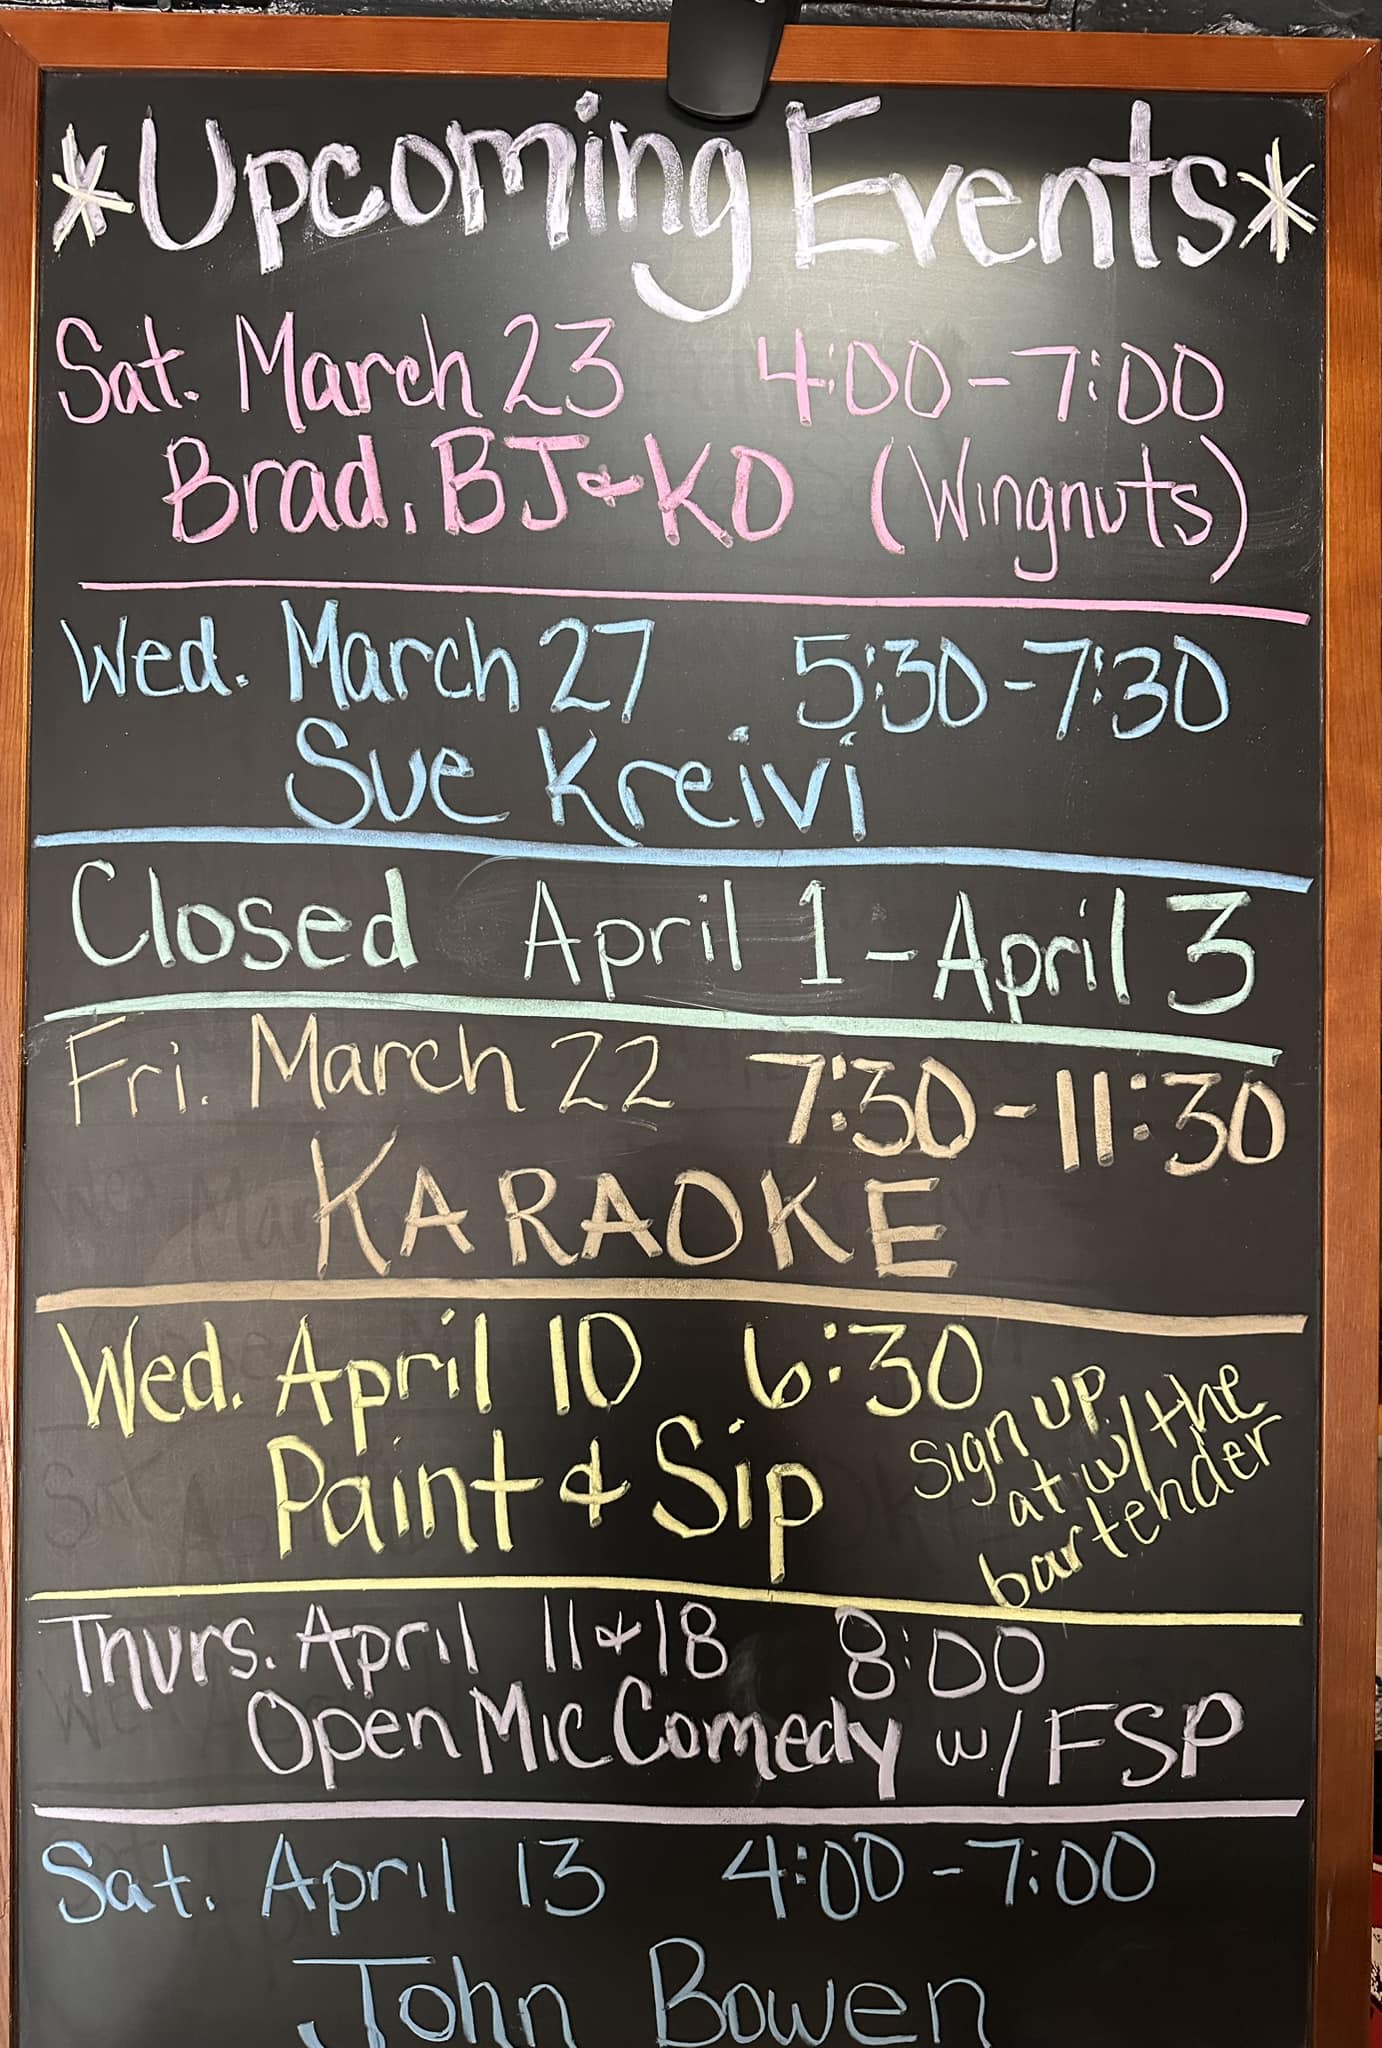 *Upcoming Events*
Sat. March 23 4:00-7:00
Brad, BJ & KD (Wingnuts)
Wed. March 27 5:30-7:30
Sue Kreivi
Closed April 1 - April 3
Fri. March 22 7:30-11:30
KARAOKE
Wed. April 10 6:30
Paint & Sip
Sign up
at w/ the
bartender
Thurs. April 11 & 18 8:00
Open Mic Comedy w/ FSP
Sat. April 13 4:00-7:00
John Bowen